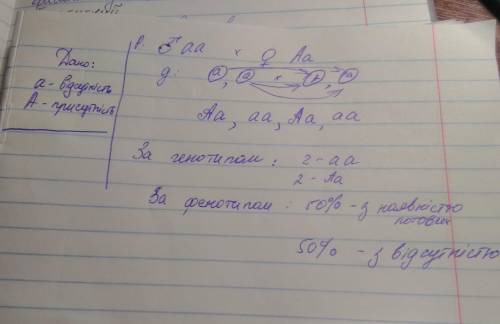 Дано:
а - відсутність
А - присутність
P. ♂ аа × ♀ Аа
g: а, а × А, а
Аа, аа, Аа, аа
За генотипом: 2 - аа
2 - Аа
За фенотипом: 50% - з наявністю
потових
50% - з відсутністю